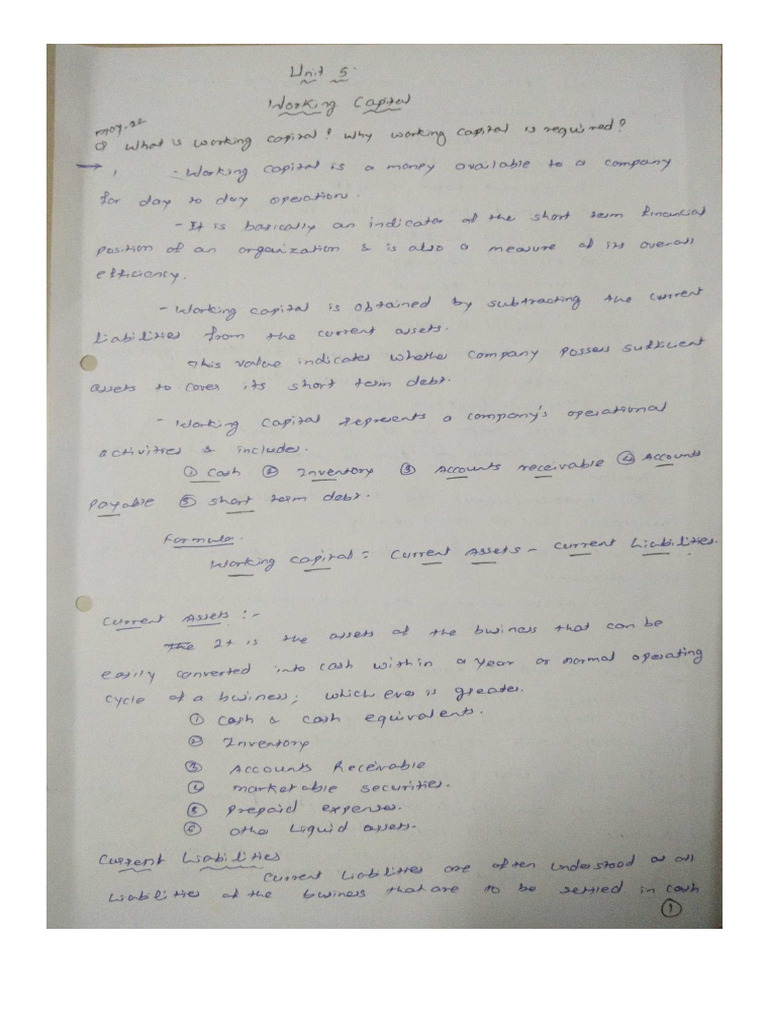 Unit 5.
Working Capital
May.22
Q What is working capital? Why working capital is required?
→ - Working capital is a money available to a company
for day to day operation.
- It is basically an indicator of the short term financial
position of an organization & is also a measure of its overall
efficiency.
- Working capital is obtained by subtracting the current
liabilities from the current assets.
This value indicates whether company possess sufficient
assets to cover its short term debt.
- Working capital represents a company's operational
activities & includes.
① Cash ② Inventory ③ Accounts receivable ④ Accounts
payable ⑤ short term debt.
Formula.
Working Capital = Current Assets - Current Liabilities.
Current Assets :-
The It is the assets of the business that can be
easily converted into cash within a year or normal operating
cycle of a business; which ever is greater.
① Cash & cash equivalents.
② Inventory
③ Accounts Receivable
④ marketable securities.
⑤ Prepaid expenses.
⑥ othe Liquid assets.
Current Liabilities
Current Liabilities are often understood as all
Liabilities of the business that are to be settled in cash
①